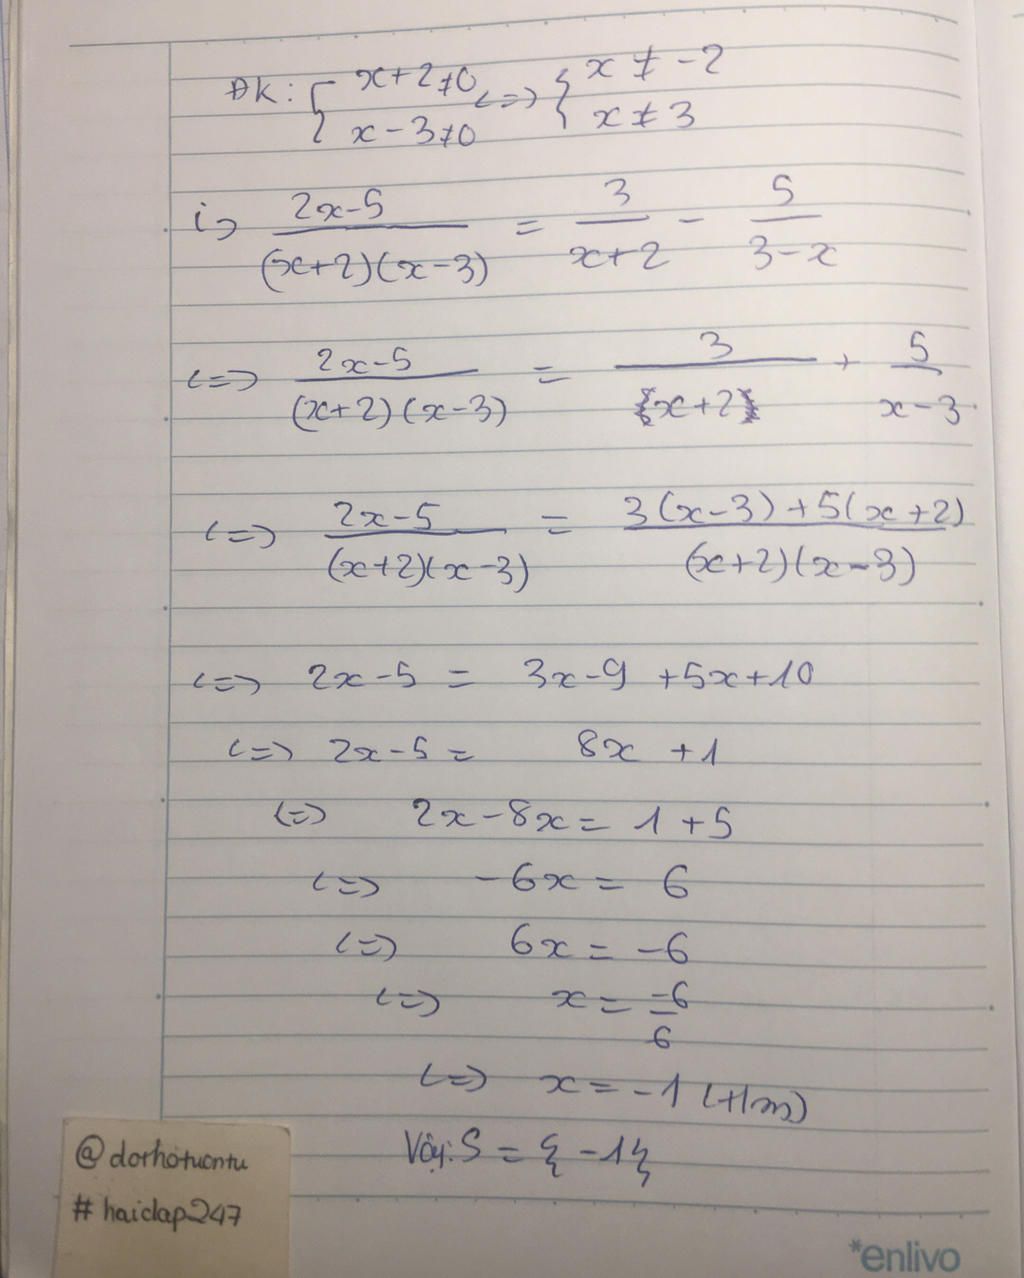 ĐK: { x+2≠0 <=> { x ≠ -2
x-3≠0 x ≠ 3
i> (2x-5)/((x+2)(x-3)) = 3/(x+2) - 5/(3-x)
<=> (2x-5)/((x+2)(x-3)) = 3/(x+2) + 5/(x-3)
<=> (2x-5)/((x+2)(x-3)) = (3(x-3)+5(x+2))/((x+2)(x-3))
<=> 2x-5 = 3x-9 +5x+10
<=> 2x-5 = 8x +1
<=> 2x-8x = 1+5
<=> -6x = 6
<=> 6x = -6
<=> x = -6/6
<=> x = -1 (tm)
Vậy: S = {-1}
@dorhotuontu
# haiclap247
*enlivo